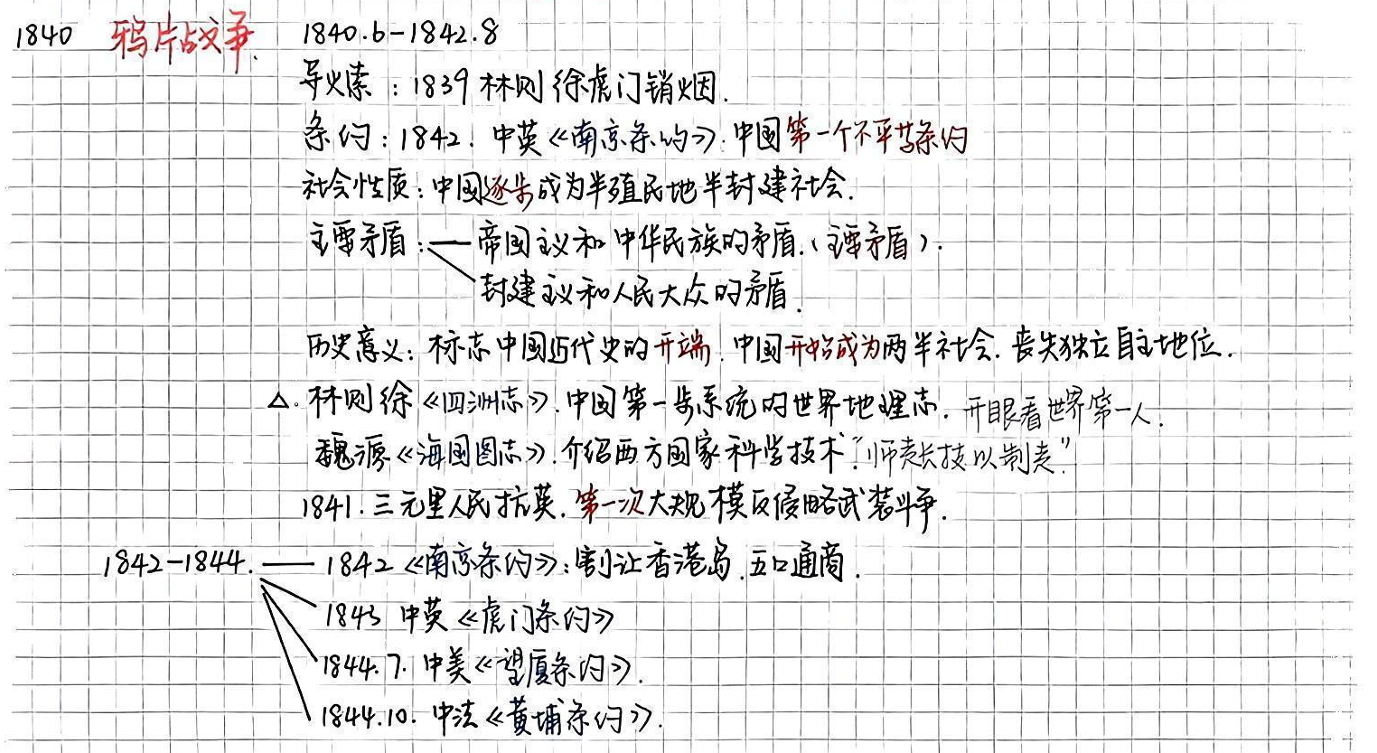 1840 鸦片战争. 1840.6-1842.8
导火索：1839 林则徐虎门销烟.
条约：1842. 中英《南京条约》. 中国第一个不平等条约
社会性质：中国逐步成为半殖民地半封建社会.
主要矛盾：帝国主义和中华民族的矛盾.（主要矛盾）.
封建主义和人民大众的矛盾.
历史意义：标志中国近代史的开端. 中国开始成为两半社会. 丧失独立自主地位.
△. 林则徐《四洲志》. 中国第一步系统的世界地理志. 开眼看世界第一人.
魏源《海国图志》. 介绍西方国家科学技术."师夷长技以制夷"
1841. 三元里人民抗英. 第一次大规模反侵略武装斗争.
1842-1844. 1842《南京条约》：割让香港岛. 五口通商.
1843 中英《虎门条约》
1844.7. 中美《望厦条约》.
1844.10. 中法《黄埔条约》.